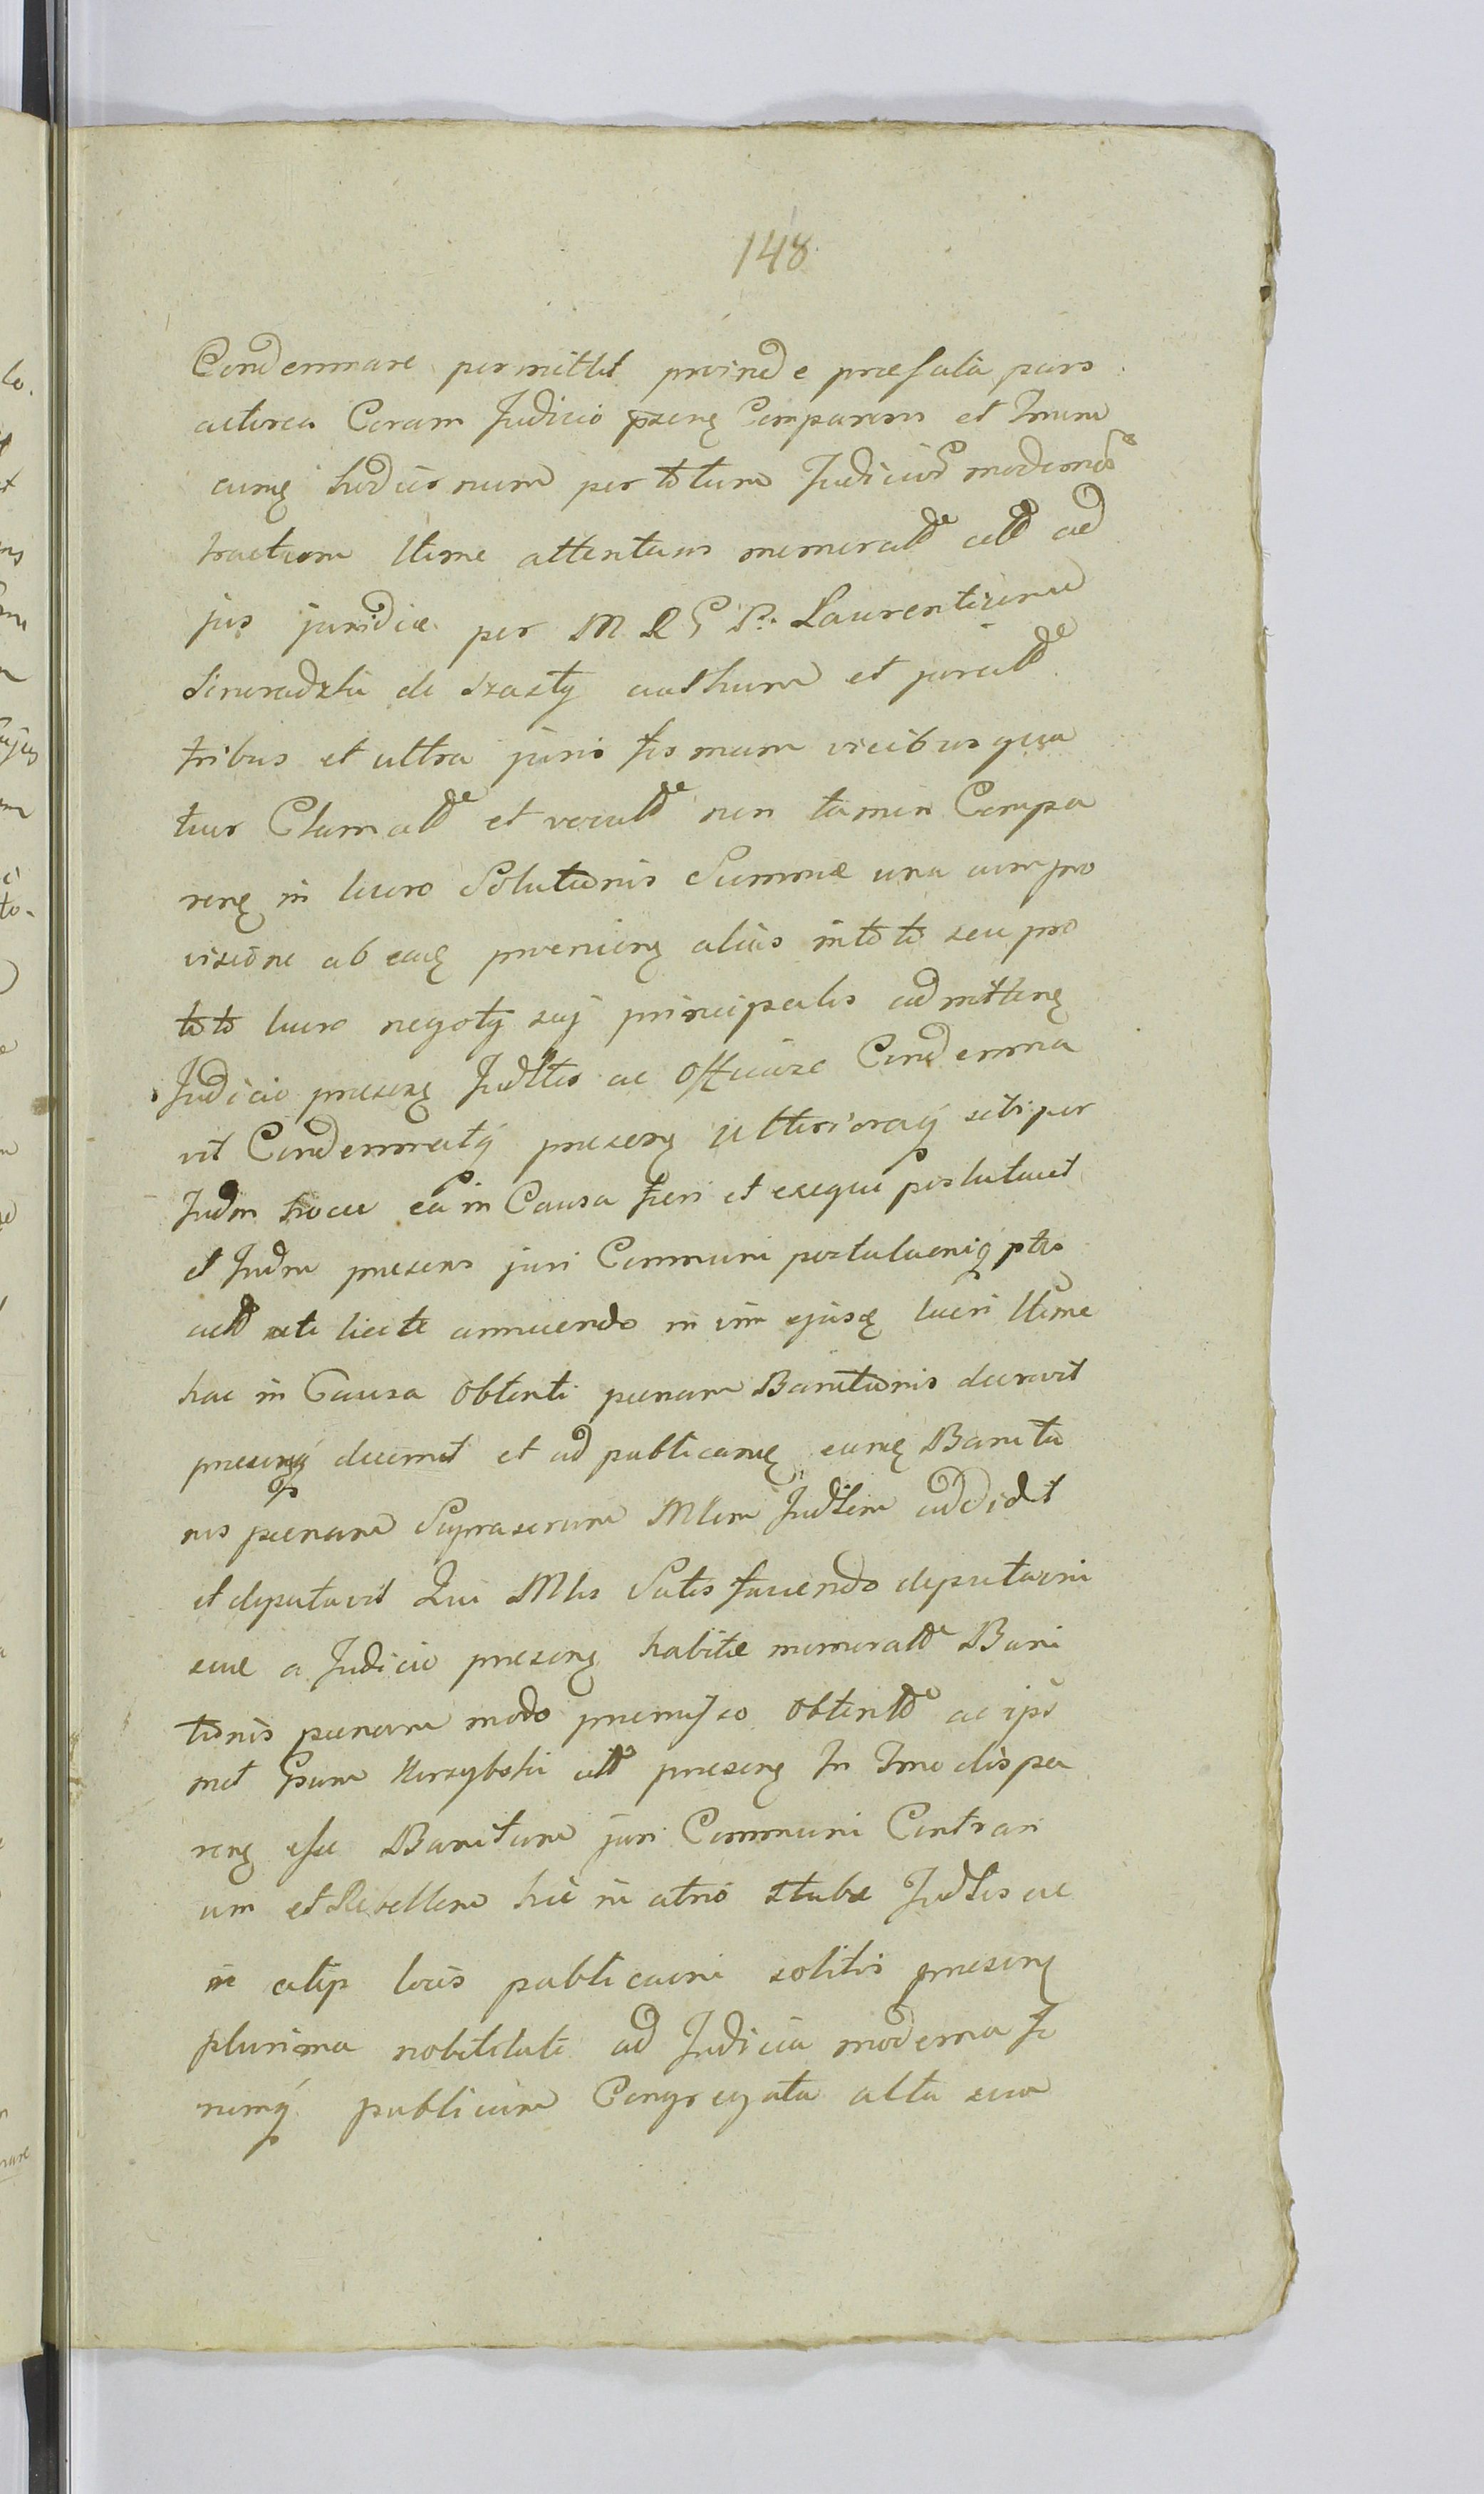 148
Condemnare permittit proinde præfata pars
actorea Coram Judicio psenę Comparens et Tmum
eumę hodiernum per totum Judiciorum modernor
tractum ltime attentans memoratde actd ad
jus juridice per M R G P. Laurentium
Sieradzki de Szasty authum et juratde
tribus et ultra juris formam vicibus qua
tuor Clamatde et vocatde non tamen Compa
renę in lucro Solutionis Summæ una cum pro
visione ab eadę provenienę alias in toto seu pro
toto lucro negotÿ suj principalis admittenę
Judicio presenę Judltis ac Officioso Condemna
vit Condemnatqꝫ presenę ulterioraqꝫ sibi per
Judm hocce ea in Causa fieri et exequi postulavit
et Judm presens juri Communi postulationiqꝫ ptis
actd uti licite annuendo in vim ejusę lucri ltime
hac in Causa Obtenti pœnam Banitionis decrevit
presenqꝫ decernit et ad publicanę eanę Banitio
nis pœnam Suprascrum Mlem Judltem addidit
et deputavit Qui Mlis Satisfaciendo deputationi
suæ a Judicio presenę habitæ memoratde Bani
tionis pœnam modo premisso Obtentde ac ips
met Gsum Korzybski citd presenę In Tmo dispa
renę esse Banitum juri Communi Contrari
um et Rebellem hic in atrio stubæ Judltis ac
in alijs locis publicaoni solitis presenę
plurima nobilitate ad Judicia moderna Fo
rumqꝫ publicum Congregata alta sua